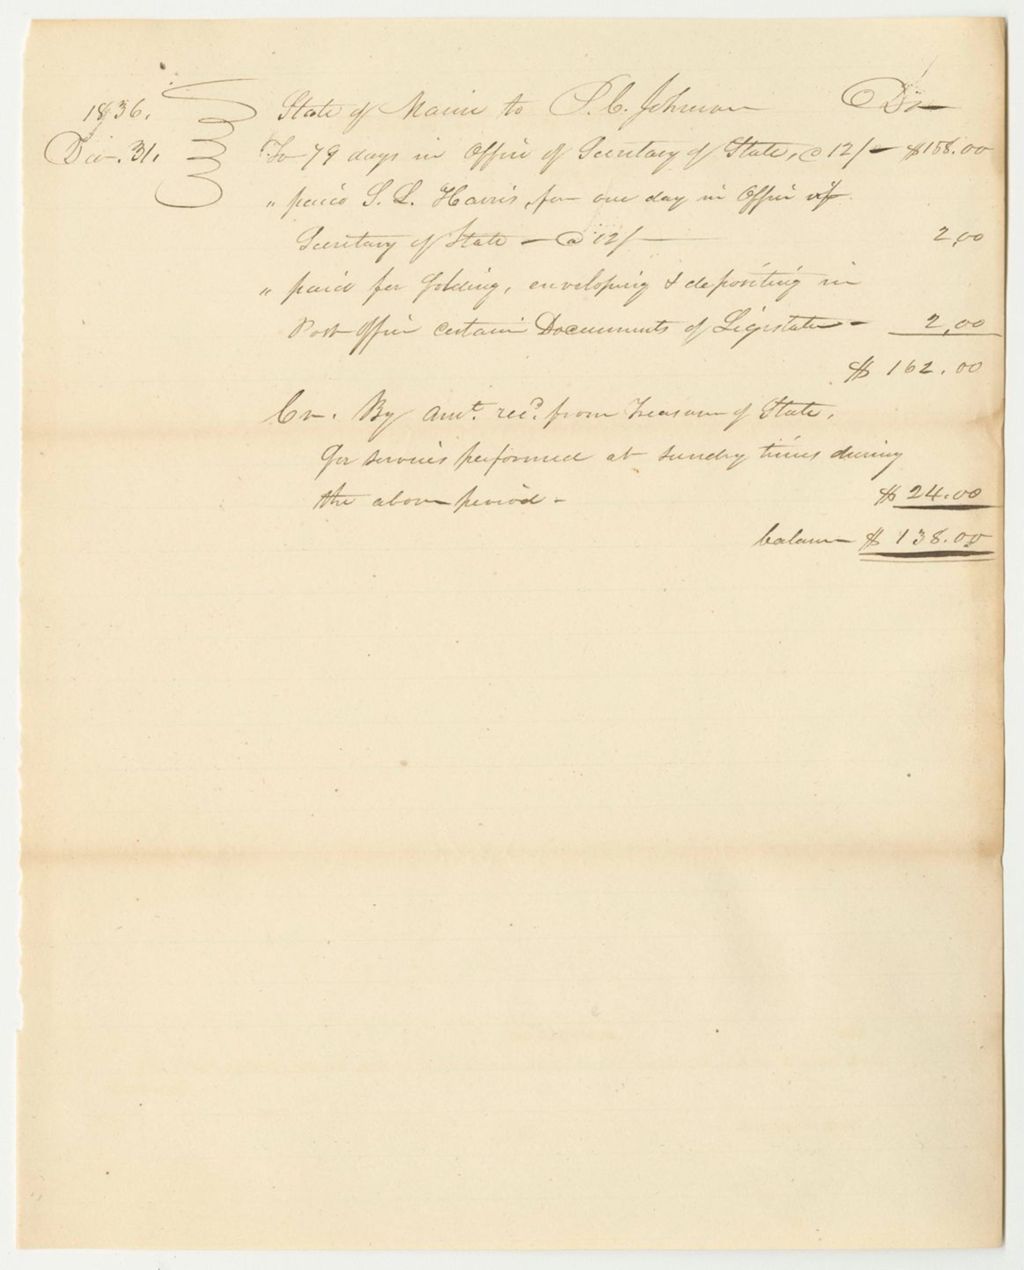 1836. State of Maine to S. C. Johnson Dr
Dec. 31. To 79 days in Office of Secretary of State, @ 12/ – $158.00
" paid S. L. Harris, for one day in Office of
Secretary of State – @ 12/ – 2,00
" paid for folding, enveloping & depositing in
Post Office certain Documents of Legislature – 2,00
$ 162.00
Cr. By amt. recd. from Treasurer of State,
for services performed at sundry times during
the above period – $ 24.00
balance $ 138.00